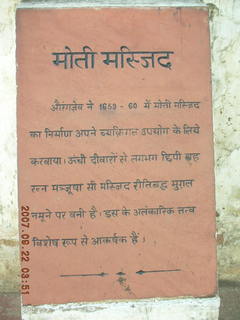 मोती मस्जिद
औरंगजेब ने 1659 - 60 में मोती मस्जिद
का निर्माण अपने व्यक्तिगत उपयोग के लिये
करवाया। ऊंची दीवारों से लगभग छिपी यह
रत्न मञ्जूषा सी मस्जिद रीतिबद्ध मुगल
नमूने पर बनी है। इस के अलंकारिक तत्व
विशेष रूप से आकर्षक हैं।
2007.09.22 03:51